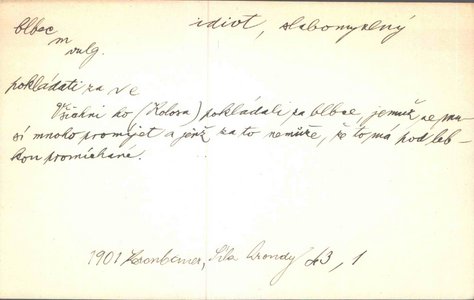 blbec m idiot, slabomyslný
vulg.
pokládati za
Všichni ho (Kolosa) pokládali za blbce, jemuž se mu-
sí mnoho promíjet a jenž za to nemůže, že to má pod leb-
kou promíchané.
1901 Síla 43, 1